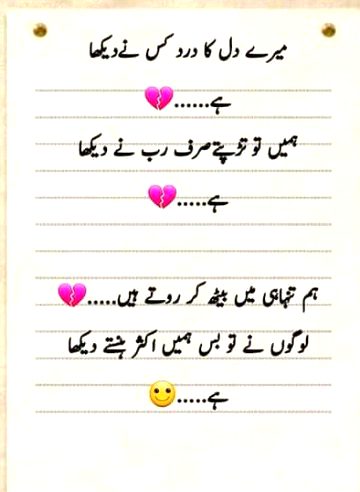 میرے دل کا درد کس نے دیکھا
ہے......💔
ہمیں تو تڑپتے صرف رب نے دیکھا
ہے.....💔
ہم تنہاہی میں بیٹھ کر روتے ہیں.....💔
لوگوں نے تو بس ہمیں اکثر ہنستے دیکھا
ہے.....🙂